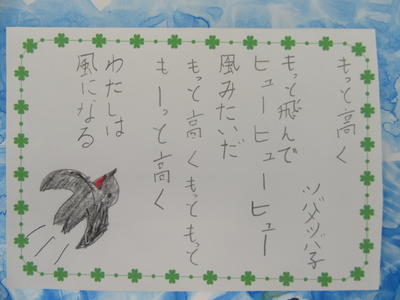 もっと高く
ツバメツバ子
もっと飛んで
ヒューヒューヒュー
風みたいだ
もっと高くもっともっと
もーっと高く
わたしは
風になる